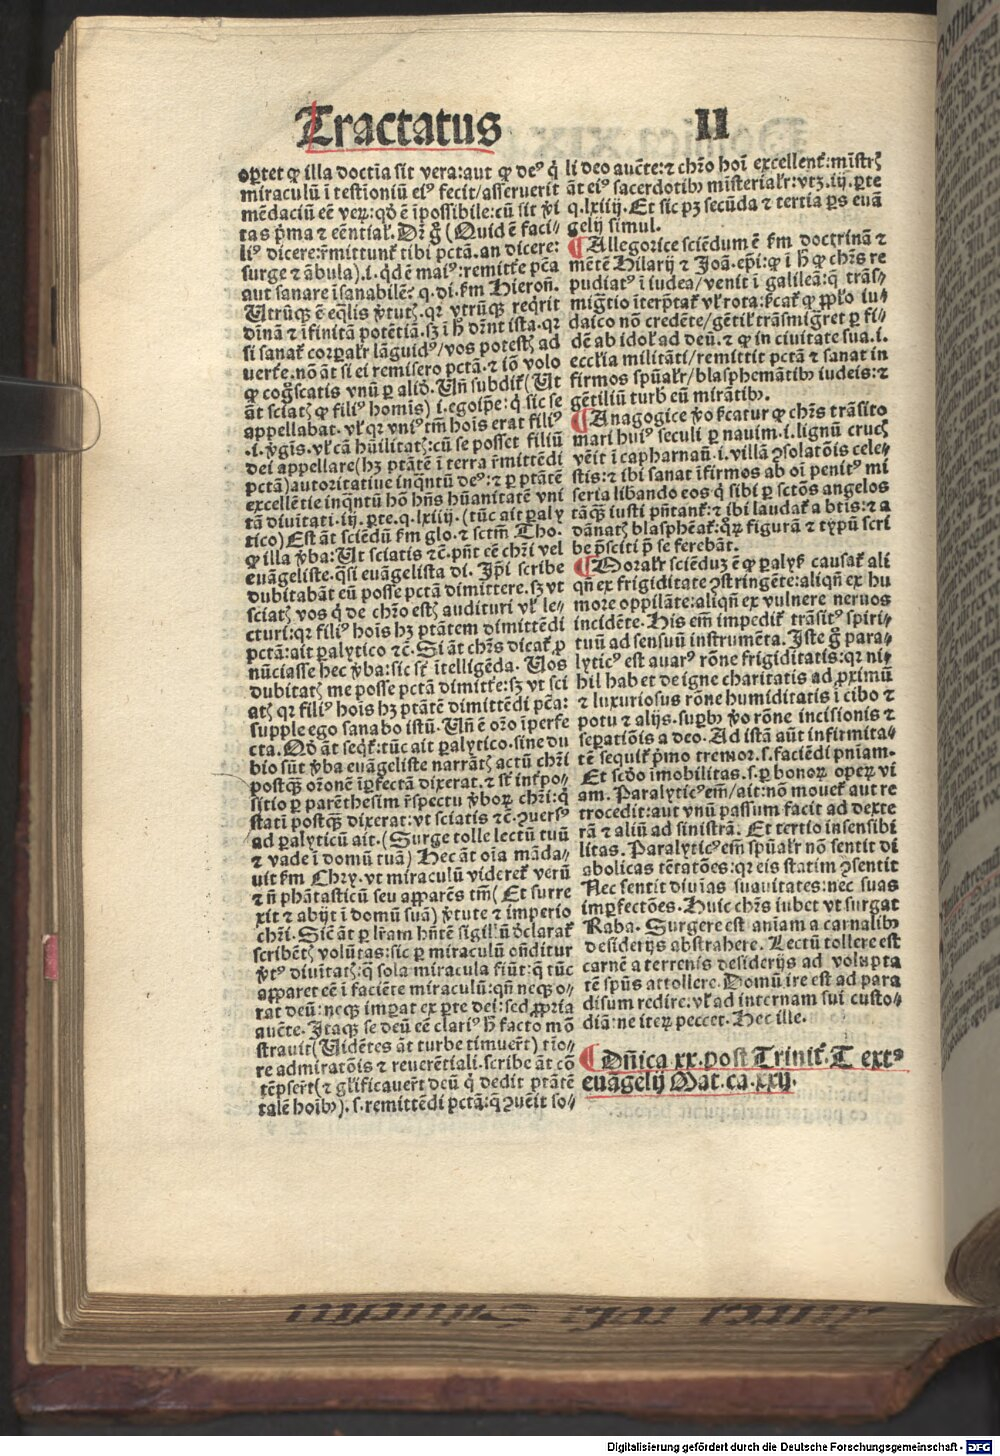 Tractatus II
oꝑtet ꝙ illa doctĩa sit vera: aut ꝙ deꝰ q̇
miraculũ ĩ testĩoniũ eiꝰ fecit/asseruerit
mẽdaciũ eẽ veꝝ: qḋ ẽ ĩpossibile: cũ sit ꝟi
tas pͥma ⁊ eẽntial̃. Dr̃ g̃ (Quid ẽ faci⸗
liꝰ dicere: r̃mittunt̃ tibi pctã. an dicere:
surge ⁊ ãbula).i. qͥd ẽ maiꝰ: remitt̃e pc̃a
aut sanare ĩsanabilẽ? q. di. ẜm Hieron̄.
Utrũqꝫ ẽ eq̃lis ꝟtutꝭ. qꝛ vtrũqꝫ req̇rit
diũnã ⁊ ĩfinitã potẽtiã. sꝫ ĩ h̃ dr̃nt ista. qꝛ
si sanat̃ corꝑal̃r lãguidꝰ/vos potestꝭ ad
uert̃e. nõ ãt si ei remisero pctã. ⁊ iõ volo
ꝙ cogͦscatis vnũ ꝑ aliḋ. Un̄ subdit̃ (Ut
ãt sciatꝭ ꝙ filiꝰ homis) i. egoip̃e: q̇ sic se
appellabat. vl̃ qꝛ vniꝰ tm̃ hoĩs erat filiꝰ
.i. ꝟgis. vl̃ cã hũilitatꝭ: cũ se posset filiũ
dei appellare (hꝫ ptãtẽ ĩ terra r̃mittẽdi
pctã) autoritatiue inqͣntũ deꝰ: ⁊ ꝑ ptãtẽ
excellẽtie inqͣntũ hõ hñs hũanitatẽ vni
tã diuitati. iij. ꝑte. q. lxiiij. (tũc ait ꝑaly
tico) Est ãt sciẽdũ ẜm glo. ⁊ sctm̃ Tho.
ꝙ illa ꝟba: Ut sciatis ⁊c̃. pn̄t eẽ chr̃i vel
euãgeliste. qͣsi euãgelista di. Ip̃i scribe
dubitabãt eũ posse pctã dimittere. sꝫ vt
sciatꝭ vos q̇ de chr̃o estꝭ audituri vl̃ le⸗
cturi: qꝛ filiꝰ hoĩs hꝫ ptãtem dimittẽdi
pctã: ait ꝑalytico ⁊c̃. Si ãt chr̃s dicat̃ ꝓ
nũciasse hec ꝟba: sic sĩt ĩtelligẽda. Uos
dubitatꝭ me posse pctã dimitt̃e: sꝫ vt sci
atꝭ qꝛ filiꝰ hoĩs hꝫ ptãtẽ dimittẽdi pc̃a:
supple ego sanabo istũ. Un̄ ẽ or̃o ĩꝑfe
cta. Qḋ ãt seqt̃: tũc ait ꝑalytico. sine du
bio sũt ꝟba euãgeliste narrãtꝭ actũ chr̃i
postqꝫ or̃onẽ ĩꝑfectã dixerat. ⁊ sĩt int̃po⸗
sitio ꝑ parẽthesim r̃spectu ꝟboꝝ chr̃i: q̇
statĩ postqꝫ dixerat: vt sciatis ⁊c̃. ꝯuersꝰ
ad ꝑalyticũ ait. (Surge tolle lectũ tuũ
⁊ vade ĩ domũ tuã) Hec ãt oĩa mãda⸗
uit ẜm Chry. vt miraculũ videret̃ verũ
⁊ ñ phãtasticũ seu apparẽs tm̃ (Et surre
xit ⁊ abijt ĩ domũ suã) ꝟtute ⁊ imperio
chr̃i. Sic̃ ãt ꝑ lr̃am hñtẽ sigillũ ḋclarat̃
scribẽtꝭ volũtas: sic ꝑ miraculũ on̄ditur
ꝟtꝰ diuitatꝭ: q̃ sola miracula fiũt: q̃ tũc
apparet eẽ ĩ faciẽte miraculũ: qn̄ neqꝫ o⸗
rat deũ: neqꝫ imꝑat ex ꝑte dei: sed ꝓpria
auc̃te. Itaqꝫ se deũ eẽ clariꝰ h̃ facto mõ
strauit (Uidẽtes ãt turbe timuer̃t) tĩo⸗
re admiratõis ⁊ reuerẽtiali. scribe ãt cõ
tẽpser̃t (⁊ gl̃ificauer̃t deũ q̇ dedit ptãtẽ
talẽ hoĩbꝰ). s. remittẽdi pctã: q̃ ꝯueit so⸗
li deo auc̃te: ⁊ chr̃o hoĩ excellent̃: mĩstrꝭ
ãt eiꝰ sacerdotibꝰ mĩsterial̃r: vtꝫ. iij. ꝑte
q. lxiiij. Et sic pꝫ secũda ⁊ tertia ꝑs euã
gelij simul.
¶ Allegorice sciẽdum ẽ ẜm doctrinã ⁊
mẽtẽ Hilarij ⁊ Joã. ep̃i: ꝙ ĩ h̃ ꝙ chr̃s re
pudiatꝰ ĩ iudea/venit ĩ galileã: q̃ trãs⸗
migͣtio ĩterp̃tat̃ vl̃ rota: ẜcat̃ ꝙ ppl̃o iu⸗
daico nõ credẽte/gẽtil̃ trãsmigͣret ꝑ fi⸗
dẽ ab idol̃ ad deũ. ⁊ ꝙ in ciuitate sua. i.
eccl̃ia militãti/remittit pctã ⁊ sanat in
firmos spũal̃r/blasphemãtibꝰ iudeis: ⁊
gẽtiliũ turb̃ eũ mirãtibꝰ.
¶ Anagogice ꝟo ẜcatur ꝙ chr̃s trãsito
mari huiꝰ seculi ꝑ nauim. i. lignũ crucꝭ
vẽit ĩ capharnaũ. i. villã ꝯsolatõis cele⸗
stis: ⁊ ibi sanat ĩfirmos ab oĩ penitꝰ mi
seria libando eos q̇ sibi ꝑ sctõs angelos
tãqꝫ iusti pñtant̃: ⁊ ibi laudat̃ a btĩs: ⁊ a
dãnatꝭ blasphẽat̃: qͦꝝ figurã ⁊ typũ scri
be p̃sciti p̃ se ferebãt.
¶ Moral̃r sciẽduꝫ ẽ ꝙ ꝑalys̃ causat̃ ali
qn̄ ex frigiditate ꝯstringẽte: aliqn̄ ex hu
more oppilãte: aliqn̄ ex vulnere neruos
incidẽte. His em̃ impedit̃ trãsitꝰ spiri⸗
tuũ ad sensuũ instrumẽta. Iste g̃ para⸗
lyticꝰ est auarꝰ rõne frigiditatis: qꝛ ni⸗
hil habet de igne charitatis ad ꝓximũ
⁊ luxuriosus rõne humiditatis ĩ cibo ⁊
potu ⁊ alijs. suꝑbꝰ ꝟo rõne incisionis ⁊
seꝑatiõis a deo. Ad istã aũt infirmita⸗
tẽ sequit̃ pͥmo tremor. s. faciẽdi pn̄iam.
Et scḋo ĩmobilitas. s. ꝑ bonoꝝ opeꝝ vi
am. Paralyticꝰ em̃/ait: nõ mouet̃ aut re
trocedit: aut vnũ passum facit ad dexte
rã ⁊ aliũ ad sinistrã. Et tertio insensibi
litas. Paralyticꝰ em̃ spũal̃r nõ sentit di
abolicas tẽtatões: qꝛ eis statim ꝯsentit
Nec sentit diuĩas suauitates: nec suas
imꝑfectões. Huic chr̃s iubet vt surgat
Raba. Surgere est aniam a carnalibꝰ
desiderijs abstrahere. Lectũ tollere est
carnẽ a terrenis desiderijs ad volupta
tẽ spũs attollere. Domũ ire est ad para
disum redire: vl̃ ad internam sui custo⸗
diã: ne iteꝝ peccet. Hec ille.
¶ Dñica xx. post Trinit̃. Textꝰ
euãgelij Mat. ca. xxij.
Digitalisierung gefördert durch die Deutsche Forschungsgemeinschaft - DFG